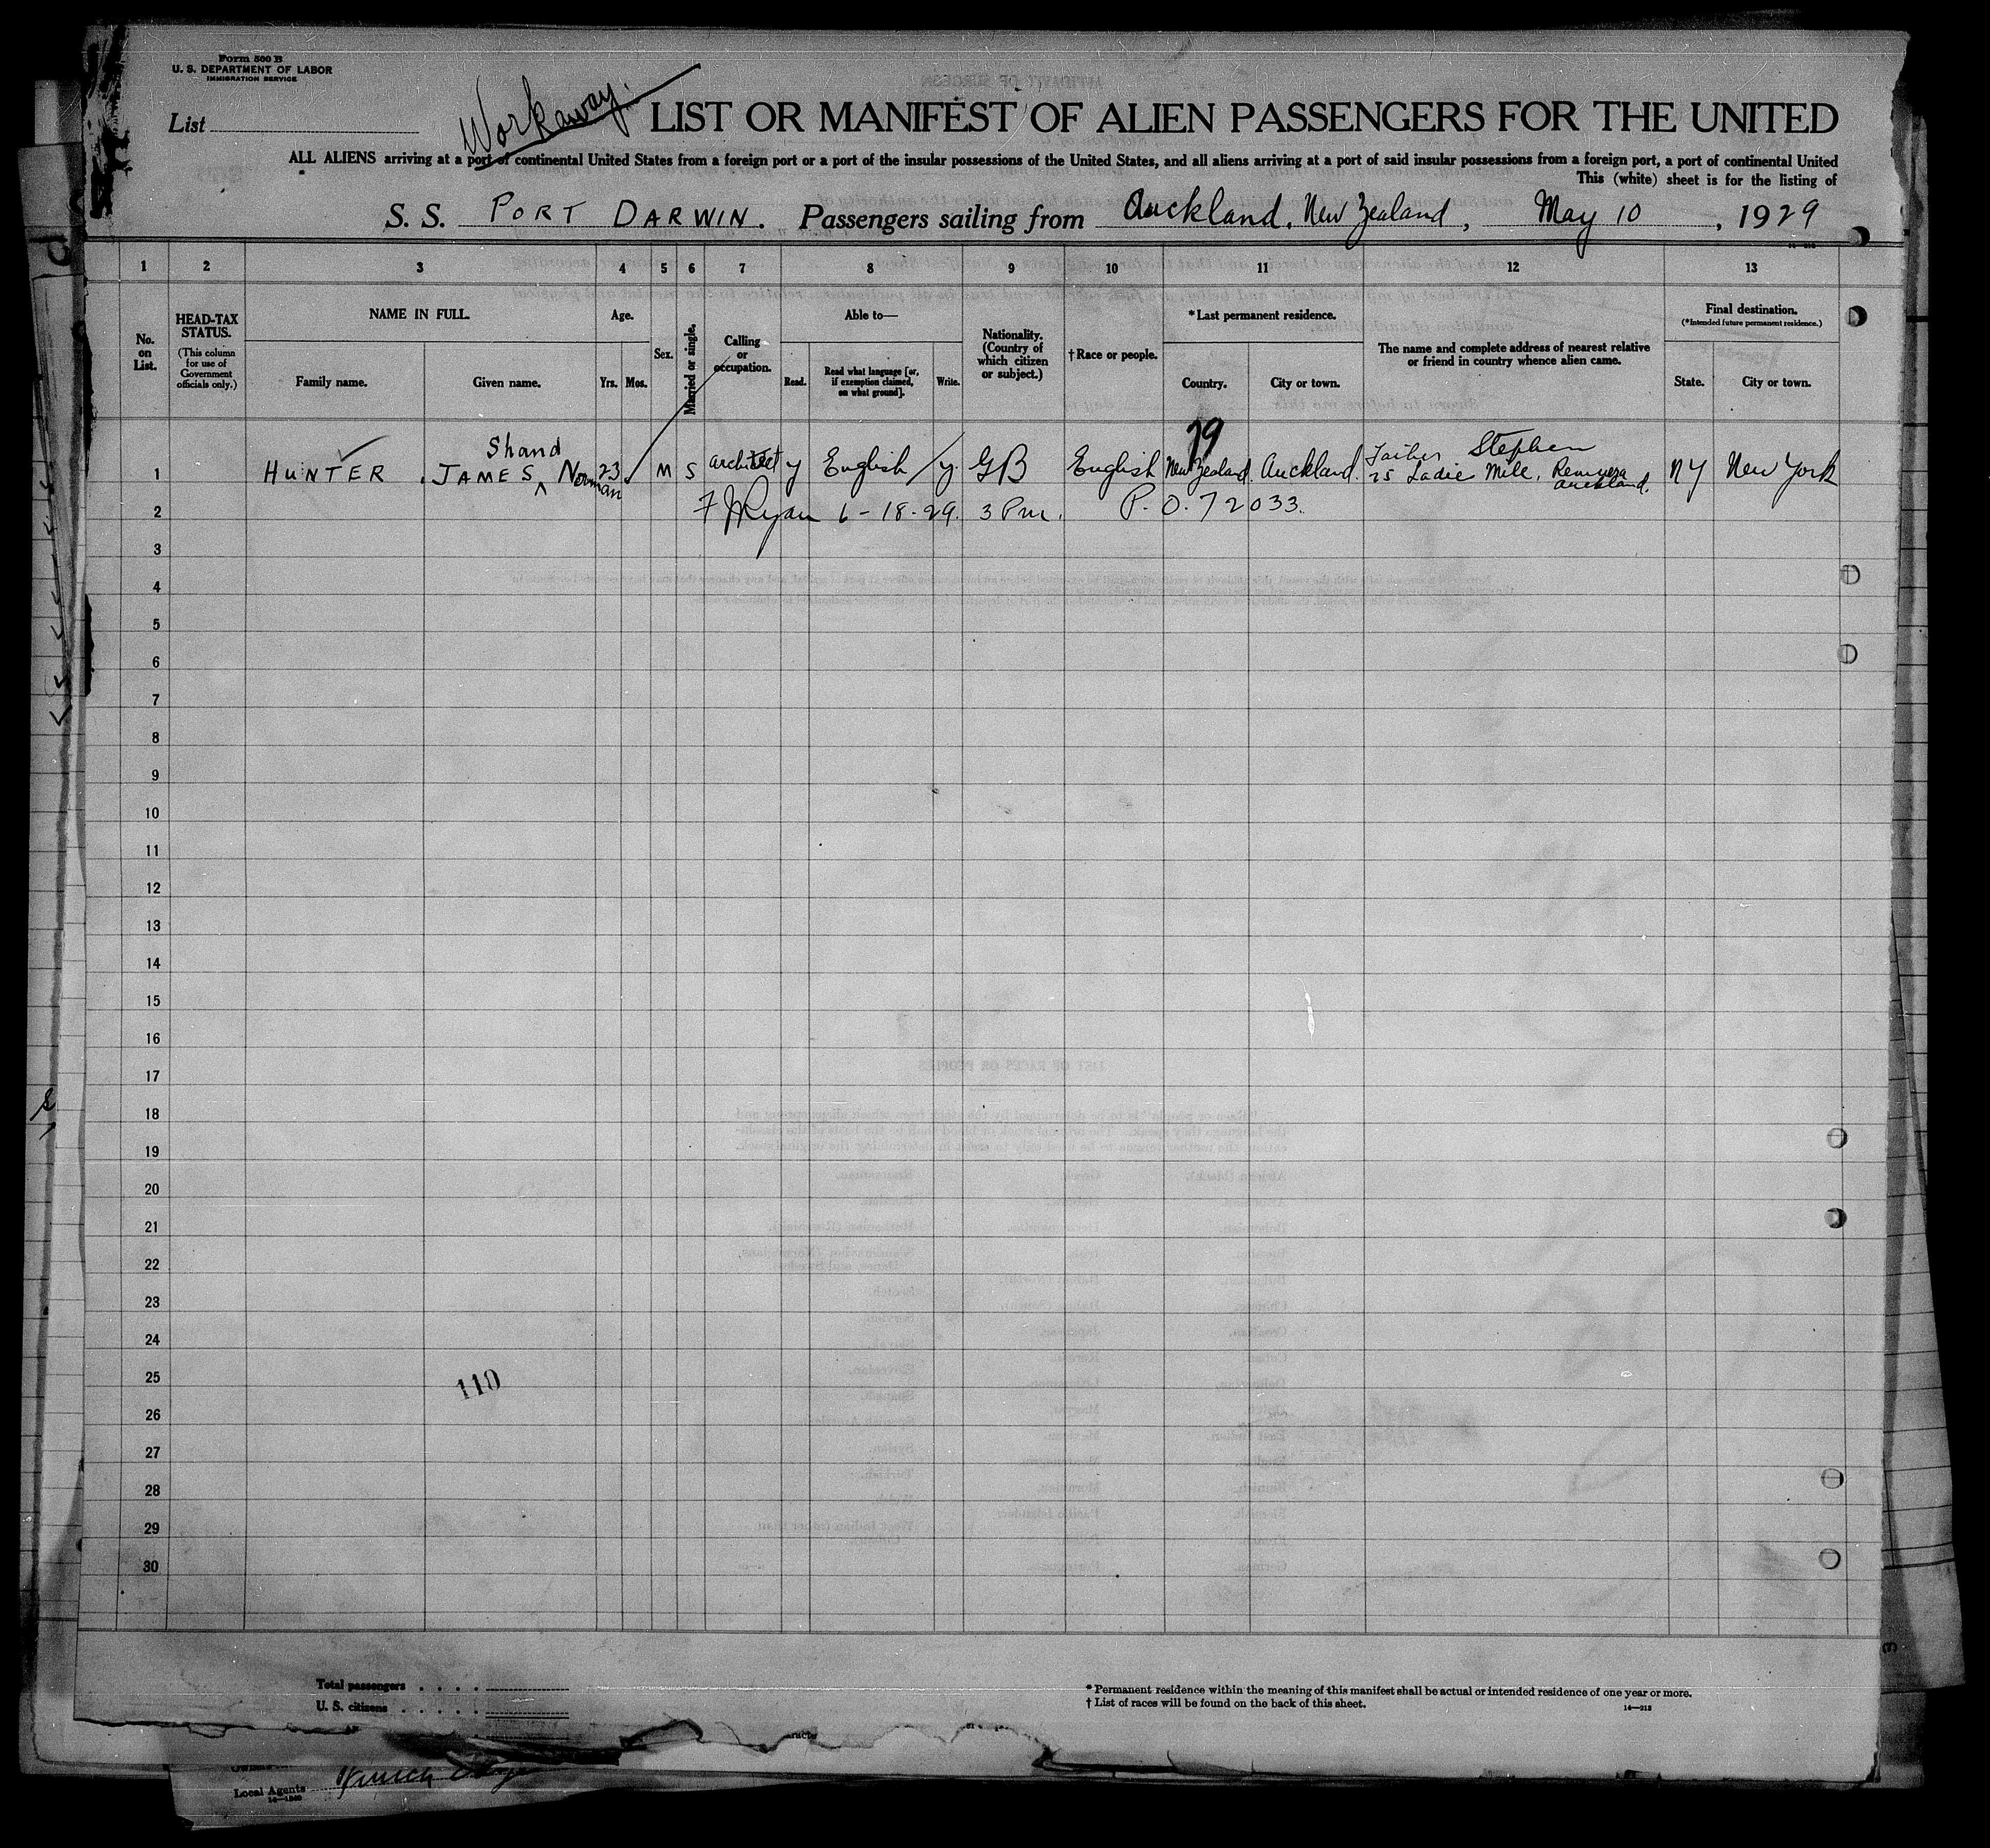 Form 500 B
U. S. DEPARTMENT OF LABOR
IMMIGRATION SERVICE
List
Workaway.
LIST OR MANIFEST OF ALIEN PASSENGERS FOR THE UNITED
ALL ALIENS arriving at a port of continental United States from a foreign port or a port of the insular possessions of the United States, and all aliens arriving at a port of said insular possessions from a foreign port, a port of continental United
This (white) sheet is for the listing of
S. S. PORT DARWIN. Passengers sailing from Auckland, New Zealand, May 10, 1929
1 2 3 4 5 6 7 8 9 10 11 12 13
No. on List.
HEAD-TAX STATUS.
(This column for use of Government officials only.)
NAME IN FULL.
Family name.
Given name.
Age.
Yrs. Mos.
Sex.
Married or single.
Calling or occupation.
Able to—
Read.
Read what language [or, if exemption claimed, on what ground].
Write.
Nationality. (Country of which citizen or subject.)
†Race or people.
*Last permanent residence.
Country.
City or town.
The name and complete address of nearest relative or friend in country whence alien came.
Final destination.
(*Intended future permanent residence.)
State.
City or town.
19
Shand
Father Stephen
1 HUNTER JAMES ^ Norman 23 M S architect y English y GB English New Zealand Auckland 25 Ladie Mile, Remuera Auckland. NY New York
2 F J Ryan 6-18-29. 3 Pm. P.O. 72033.
3
4
5
6
7
8
9
10
11
12
13
14
15
16
17
18
19
20
21
22
23
24
25
110
26
27
28
29
30
Total passengers
U. S. citizens
* Permanent residence within the meaning of this manifest shall be actual or intended residence of one year or more.
† List of races will be found on the back of this sheet.
14—212
Local Agents